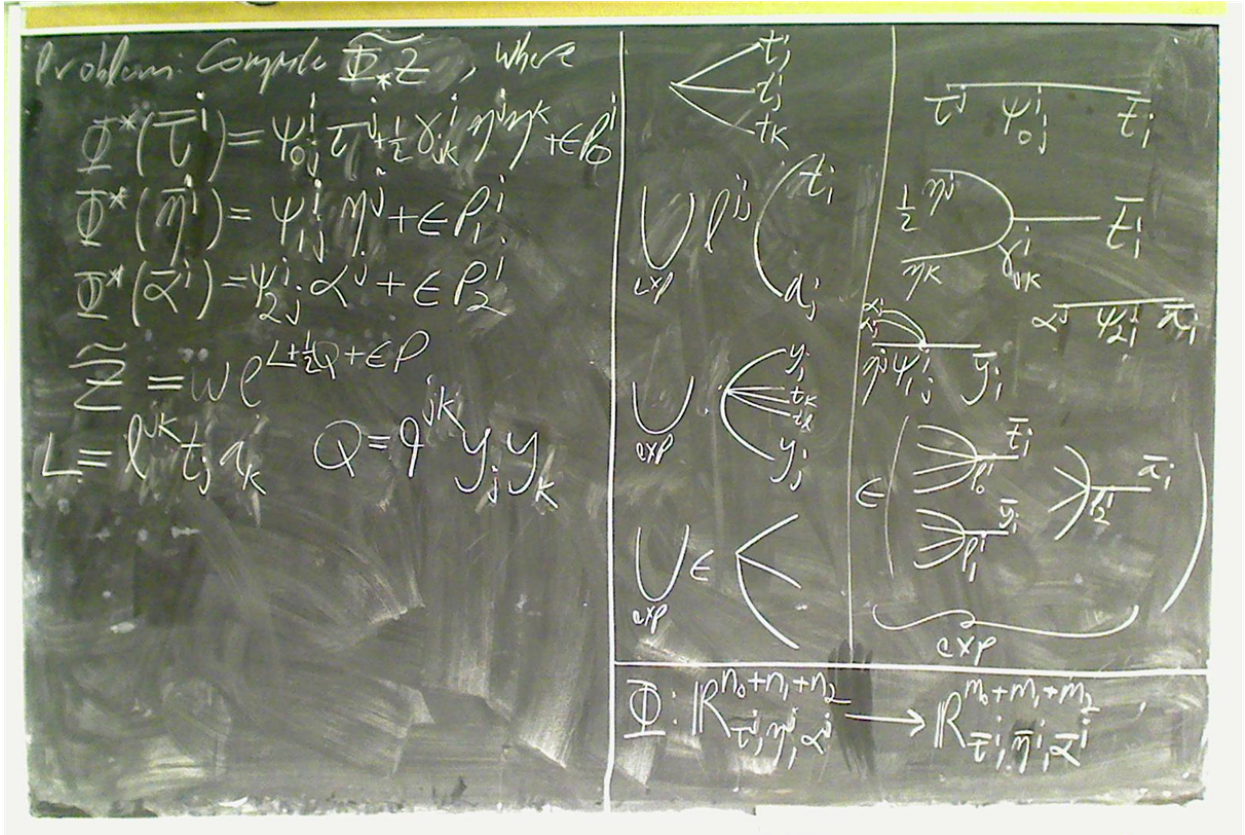 Problem: Compute \widetilde{Φ_* Z}, where
Φ^*(\bar τ^i) = ψ_{0j}^i τ^j + ½ γ_{jk}^i η^j η^k + ϵ P_0^i
Φ^*(\bar η^i) = ψ_{1j}^i η^j + ϵ P_1^i
Φ^*(\bar α^i) = ψ_{2j}^i α^j + ϵ P_2^i
\widetilde{Z} = ω e^{L + ½Q + ϵP}
L = l^{jk} t_j a_k   Q = q^{jk} y_j y_k
t_i
t_j
t_k
exp l^{ij} t_i a_j
exp y_i t_k t_l y_j
exp ϵ
τ^j ψ_{0j}^i \bar t_i
½ η^j η^k γ_{jk}^i \bar t_i
α^j ψ_{2j}^i \bar a_i
η^j ψ_{1j}^i \bar y_i
ϵ ( P_0^i \bar t_i P_2^i \bar a_i
P_1^i \bar y_i )
exp
Φ: ℝ^{n_0+n_1+n_2}_{τ^j, η^j, α^j} → ℝ^{m_0+m_1+m_2}_{\bar τ^i, \bar η^i, \bar α^i},